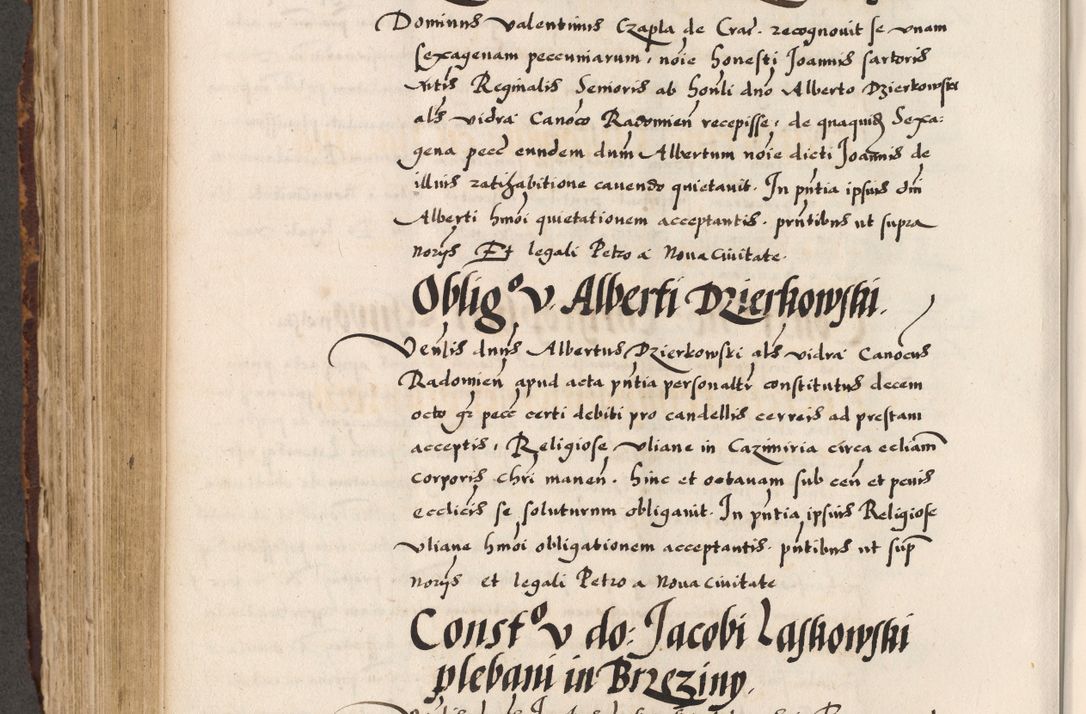 Dominus Valentinus Czapla de Crac. recognouit se vnam
sexagenam peccuniarum, noie honesti Joannis sartoris
Reginalis Senioris ab honli dno Alberto Dzierkowski
als vidra Canoco Radomien recepisse, de quaquid Sexa:
gena pecc eundem dnm Albertum noie dicti Joannis de
illius ratihabitione cauendo quietauit. In pntia ipsius dni
Alberti hmoi quietationem acceptantis. pntibus ut supra
norijs Et legali Petro a Noua Ciuitate.
Oblig° v. Alberti Dzierkowski.
Venlis dnus Albertus Dzierkowski als vidra Canocus
Radomien apud acta pntia personaltr constitutus decem
octo gr pecc certi debiti pro candellis cerreis ad prestam
acceptis, Religiose Vliane in Cazimiria circa ecliam
corporis Chri manen. hinc et octauam sub cen et penis
ecclicis se soluturum obligauit. In pntia ipsius Religiose
Vliane hmoi obligationem acceptantis. pntibus ut sup
norijs et legali Petro a Noua Ciuitate
Const° v do: Jacobi Laskowski
plebani in Brzeziny.